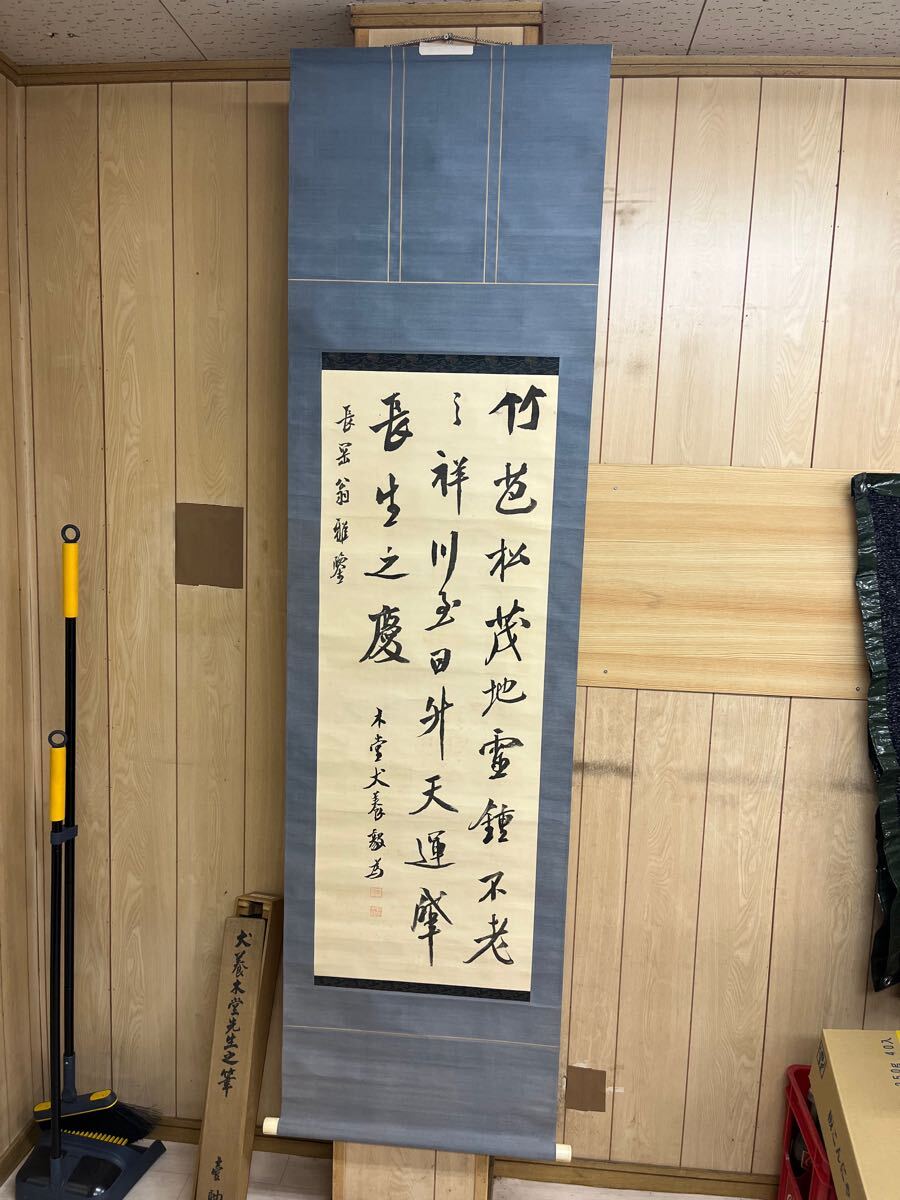 竹苞松茂地靈鍾不老
之祥川至日升天運肇
長生之慶
長
翁雅鑒
木堂犬養毅為
犬養木堂先生之筆
壹軸
350g 40入